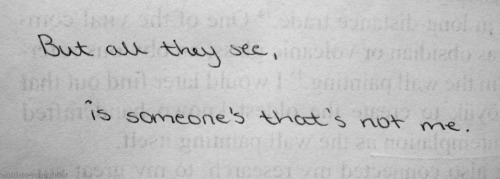 But all they see,
is someone's that's not me.